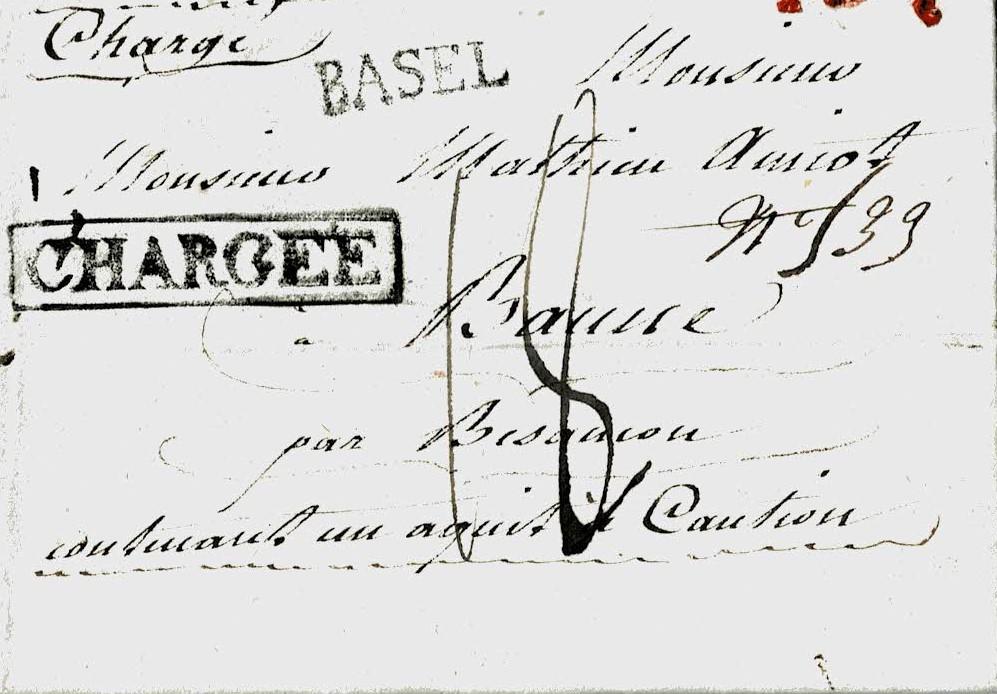 Chargé
BASEL
Monsieur
Monsieur Mathieu Amiot
N° 533
CHARGÉE
à Baume
18
par Besancon
contenant un aquit à Caution